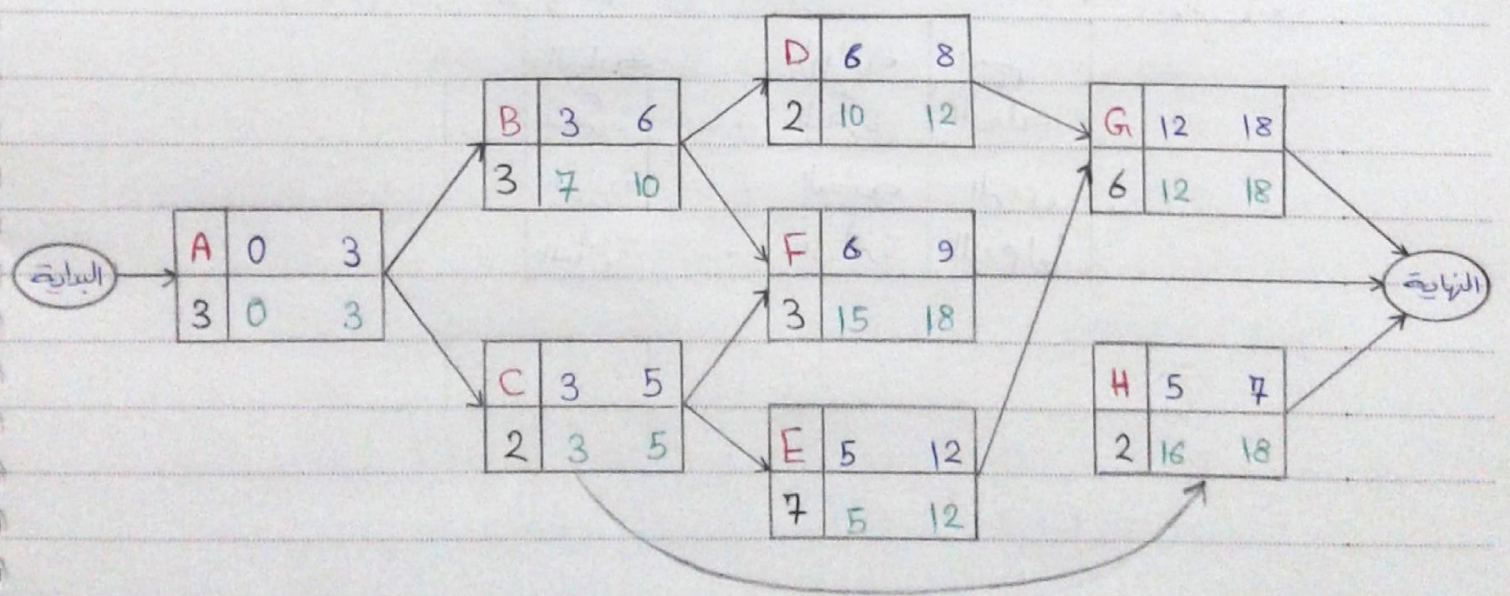 البداية
A 0 3
3 0 3
B 3 6
3 7 10
C 3 5
2 3 5
D 6 8
2 10 12
F 6 9
3 15 18
E 5 12
7 5 12
G 12 18
6 12 18
H 5 7
2 16 18
النهاية